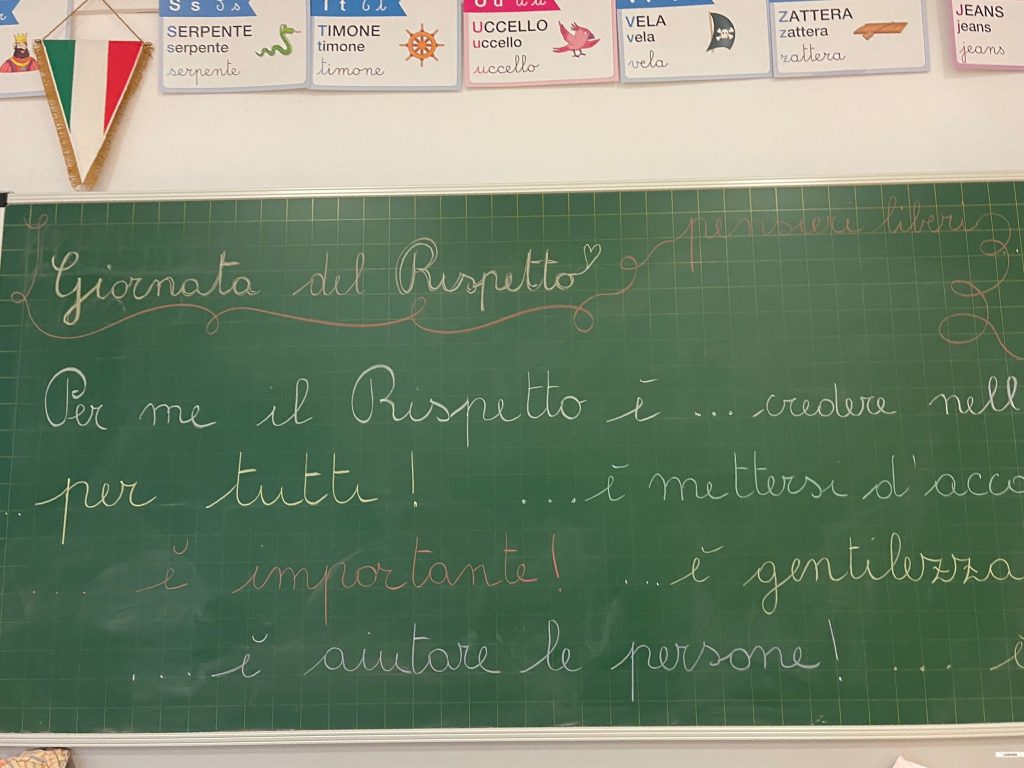 S s
SERPENTE
serpente
serpente
T t
TIMONE
timone
timone
U u
UCCELLO
uccello
uccello
VELA
vela
vela
ZATTERA
zattera
zattera
JEANS
jeans
jeans
Giornata del Rispetto
pensieri liberi
Per me il Rispetto è ... credere nell
... per tutti! ....è mettersi d'acco
.... è importante! ....è gentilezza
....è aiutare le persone! .... è